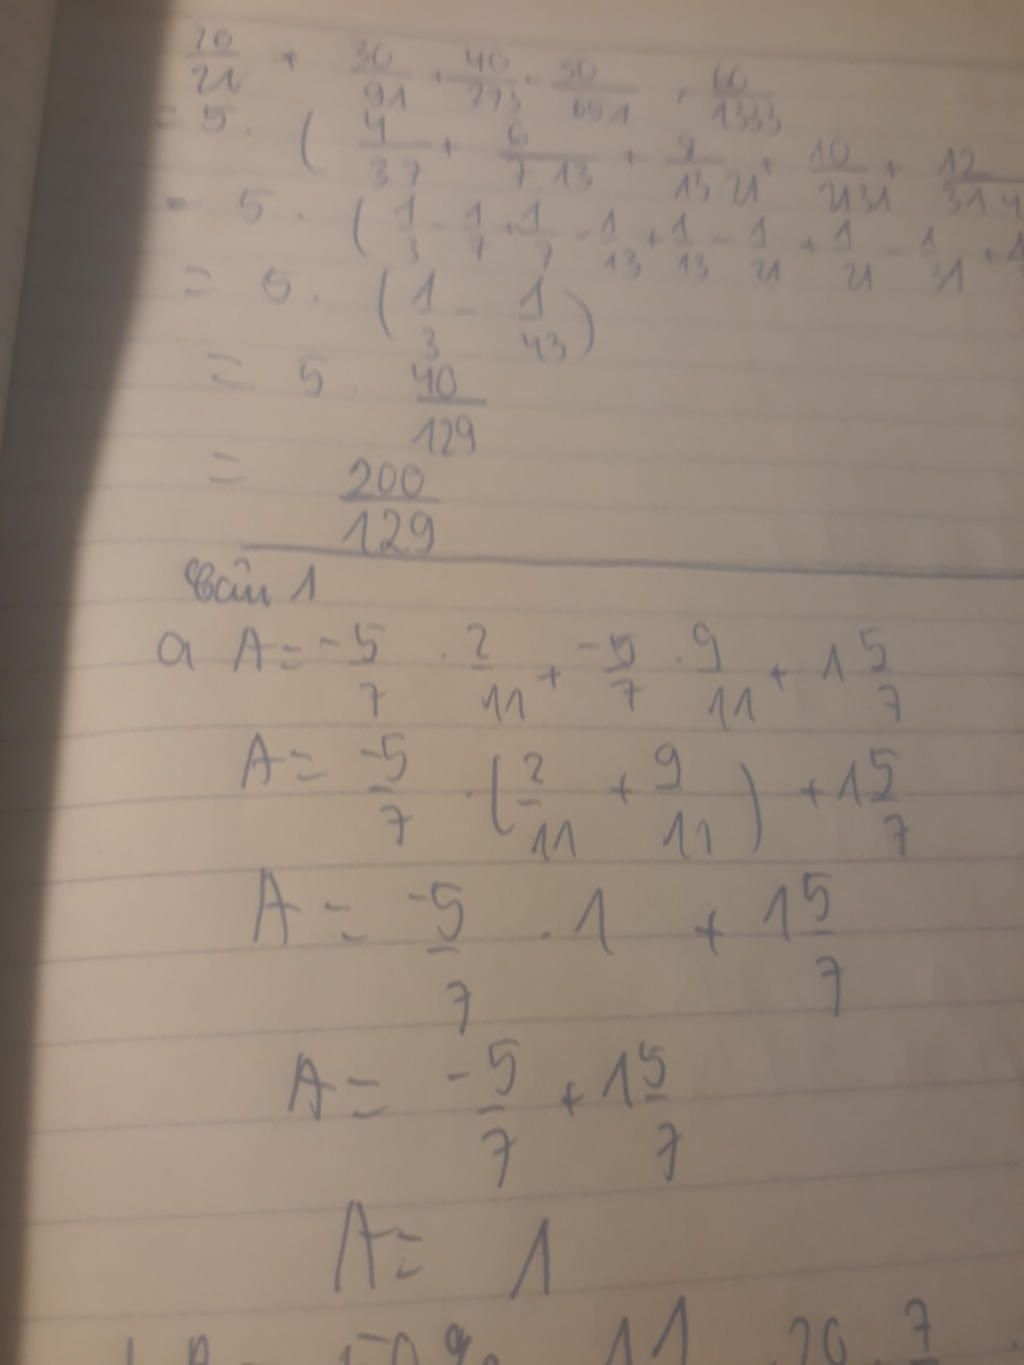 20/21 + 30/91 + 40/273 + 50/651 + 60/1333
= 5. ( 4/37 + 6/7.13 + 9/13 21 + 10/21 31 + 12/31 4
= 5. ( 1/3 - 1/7 + 1/7 - 1/13 + 1/13 - 1/21 + 1/21 - 1/31 + 1
= 5. ( 1/3 - 1/43 )
= 5. 40/129
= 200/129
Bài 1
a A = -5/7 . 2/11 + -5/7 . 9/11 + 1 5/7
A = -5/7 . ( 2/11 + 9/11 ) + 1 5/7
A = -5/7 . 1 + 1 5/7
A = -5/7 + 1 5/7
A = 1